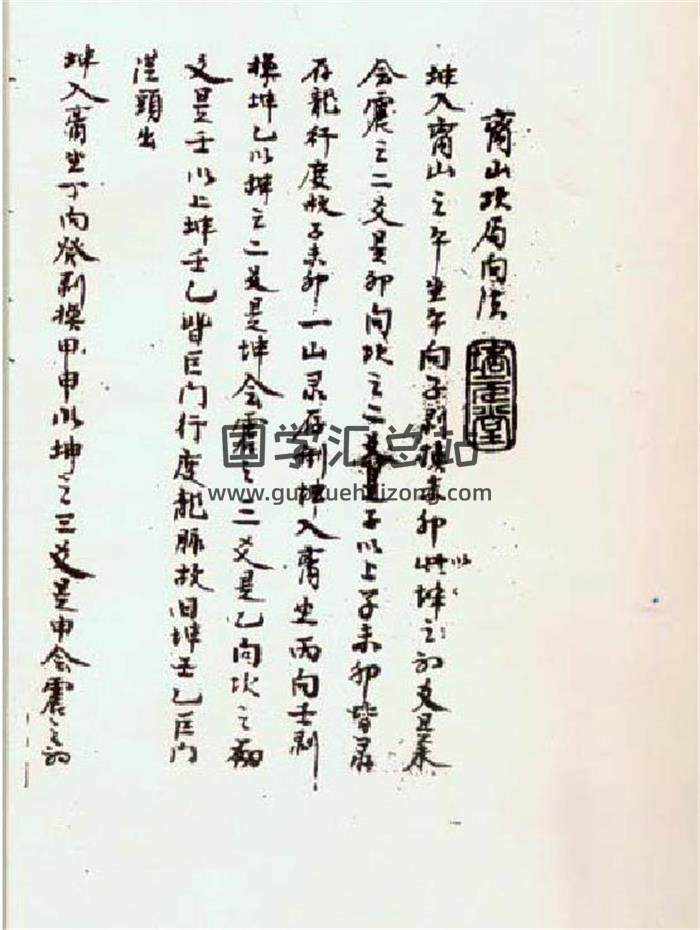 离山坎局向法
坤入离山之午坐午向子剥换未卯此以坤之初爻是未
会震之二爻是卯向坎之二爻是子以上子未卯皆录
存龍行度故子未卯一山录存 坤入离坐丙向壬剥
换坤乙以坤之二爻是坤会震之二爻是乙向坎之初
爻是壬以上坤壬乙皆巨门行度龍脈故曰坤壬乙巨门
從頭出
坤入离坐丁向癸剥换甲申以坤之三爻是申会震之初
国学汇总站
www.guoxuehuizong.com